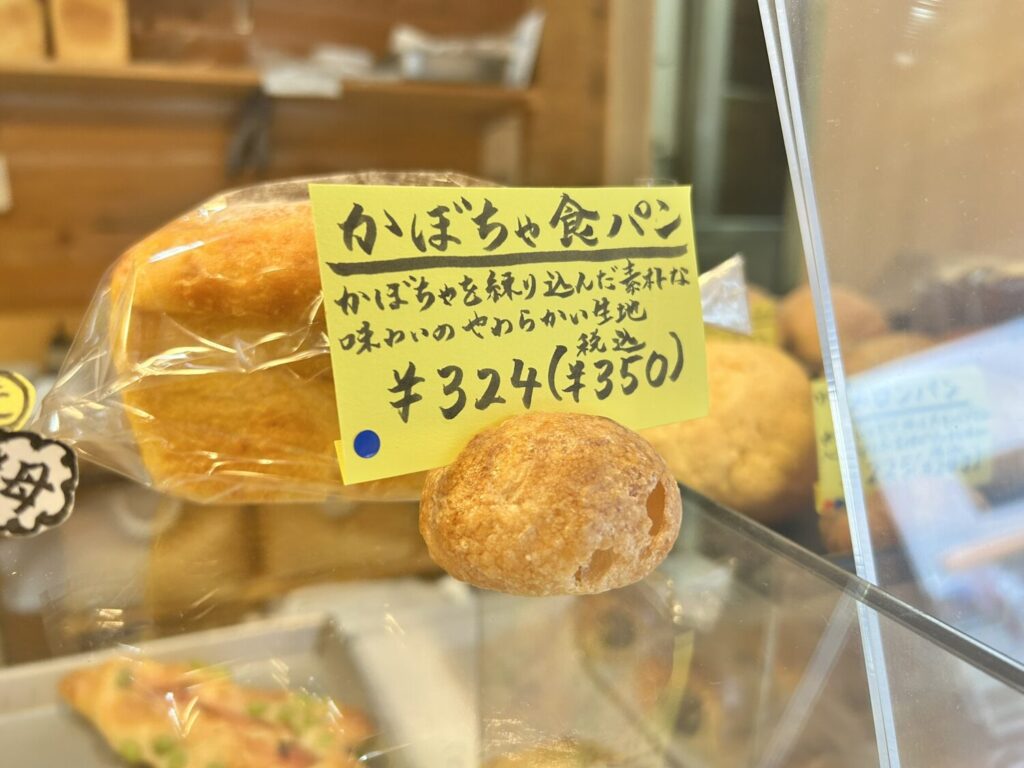 かぼちゃ食パン
かぼちゃを練り込んだ素朴な
味わいのやわらかい生地
¥324(税込¥350)